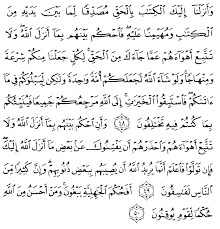 وَأَنزَلْنَا إِلَيْكَ الْكِتَٰبَ بِالْحَقِّ مُصَدِّقًا لِّمَا بَيْنَ يَدَيْهِ مِنَ
الْكِتَٰبِ وَمُهَيْمِنًا عَلَيْهِ فَاحْكُم بَيْنَهُم بِمَا أَنزَلَ اللَّهُ وَلَا
تَتَّبِعْ أَهْوَاءَهُمْ عَمَّا جَاءَكَ مِنَ الْحَقِّ لِكُلٍّ جَعَلْنَا مِنكُمْ شِرْعَةً
وَمِنْهَاجًا وَلَوْ شَاءَ اللَّهُ لَجَعَلَكُمْ أُمَّةً وَٰحِدَةً وَلَٰكِن لِّيَبْلُوَكُمْ فِي مَا
ءَاتَىٰكُمْ فَاسْتَبِقُوا الْخَيْرَٰتِ إِلَى اللَّهِ مَرْجِعُكُمْ جَمِيعًا فَيُنَبِّئُكُم
بِمَا كُنتُمْ فِيهِ تَخْتَلِفُونَ ٤٨ وَأَنِ احْكُم بَيْنَهُم بِمَا أَنزَلَ اللَّهُ
وَلَا تَتَّبِعْ أَهْوَاءَهُمْ وَاحْذَرْهُمْ أَن يَفْتِنُوكَ عَن بَعْضِ مَا أَنزَلَ اللَّهُ إِلَيْكَ
فَإِن تَوَلَّوْا فَاعْلَمْ أَنَّمَا يُرِيدُ اللَّهُ أَن يُصِيبَهُم بِبَعْضِ ذُنُوبِهِمْ وَإِنَّ كَثِيرًا مِّنَ
النَّاسِ لَفَٰسِقُونَ ٤٩ أَفَحُكْمَ الْجَٰهِلِيَّةِ يَبْغُونَ وَمَنْ أَحْسَنُ مِنَ اللَّهِ
حُكْمًا لِّقَوْمٍ يُوقِنُونَ ٥٠